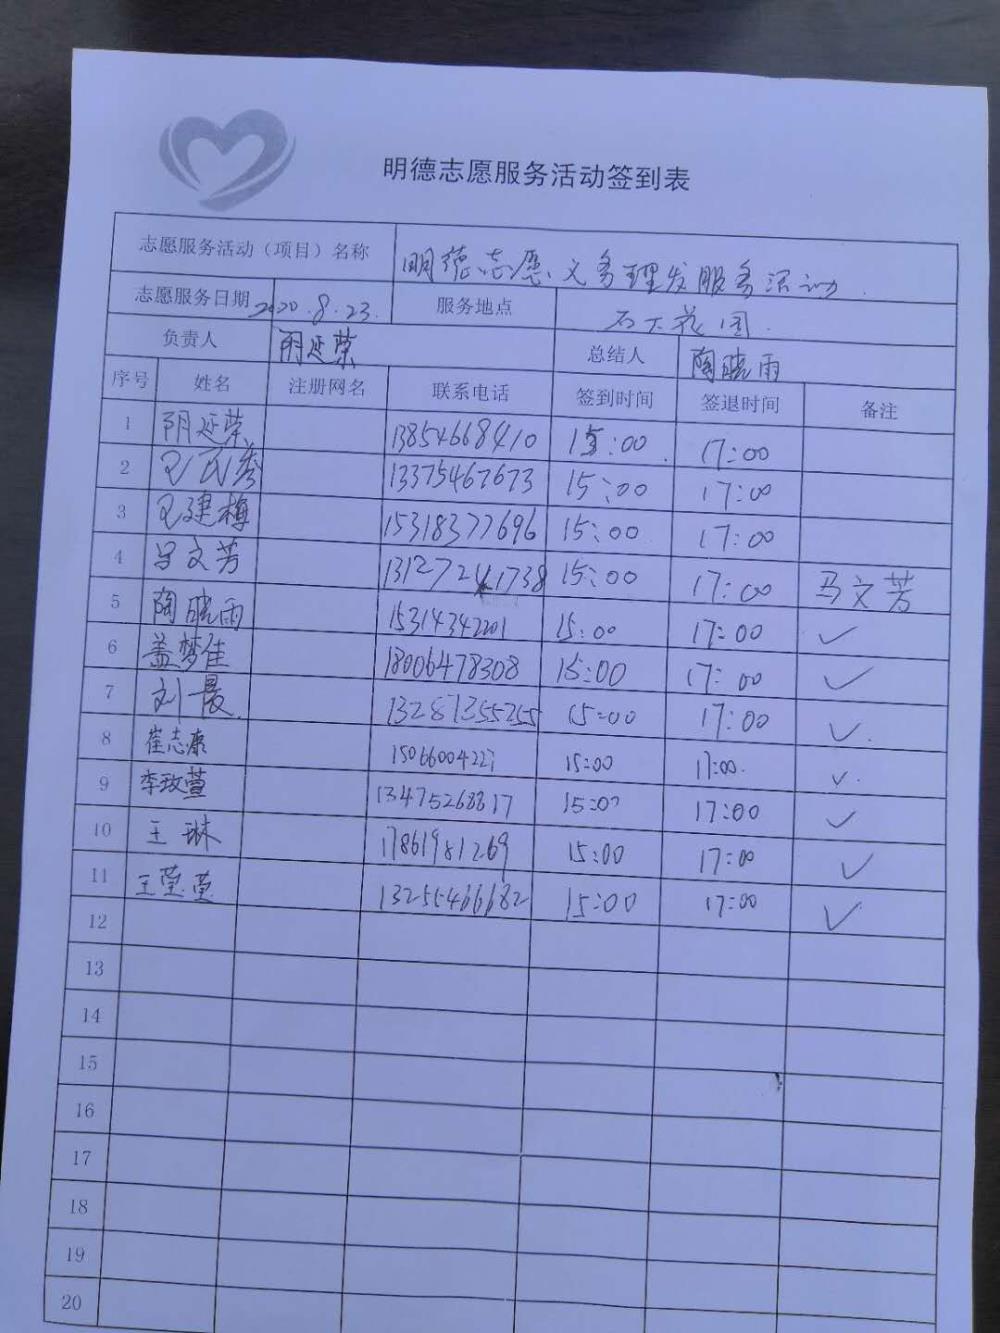 明德志愿服务活动签到表
志愿服务活动（项目）名称 明德志愿、义务理发服务活动
志愿服务日期 2020.8.23. 服务地点 石大花园
负责人 阴延荣 总结人 陶晓雨
序号 姓名 注册网名 联系电话 签到时间 签退时间 备注
1 阴延荣 13854668410 15:00 17:00
2 王民秀 13375467673 15:00 17:00
3 王建梅 15318377696 15:00 17:00
4 马文芳 15:00 17:00 马文芳
5 陶晓雨 15314342201 15:00 17:00 ✓
6 盖梦佳 18006478308 15:00 17:00 ✓
7 刘晨 13281355255 15:00 17:00 ✓
8 崔志康 15066004227 15:00 17:00 ✓
9 李玫萱 13475268817 15:00 17:00 ✓
10 王琳 17861981269 15:00 17:00 ✓
11 王莹莹 13255466682 15:00 17:00 ✓
12
13
14
15
16
17
18
19
20